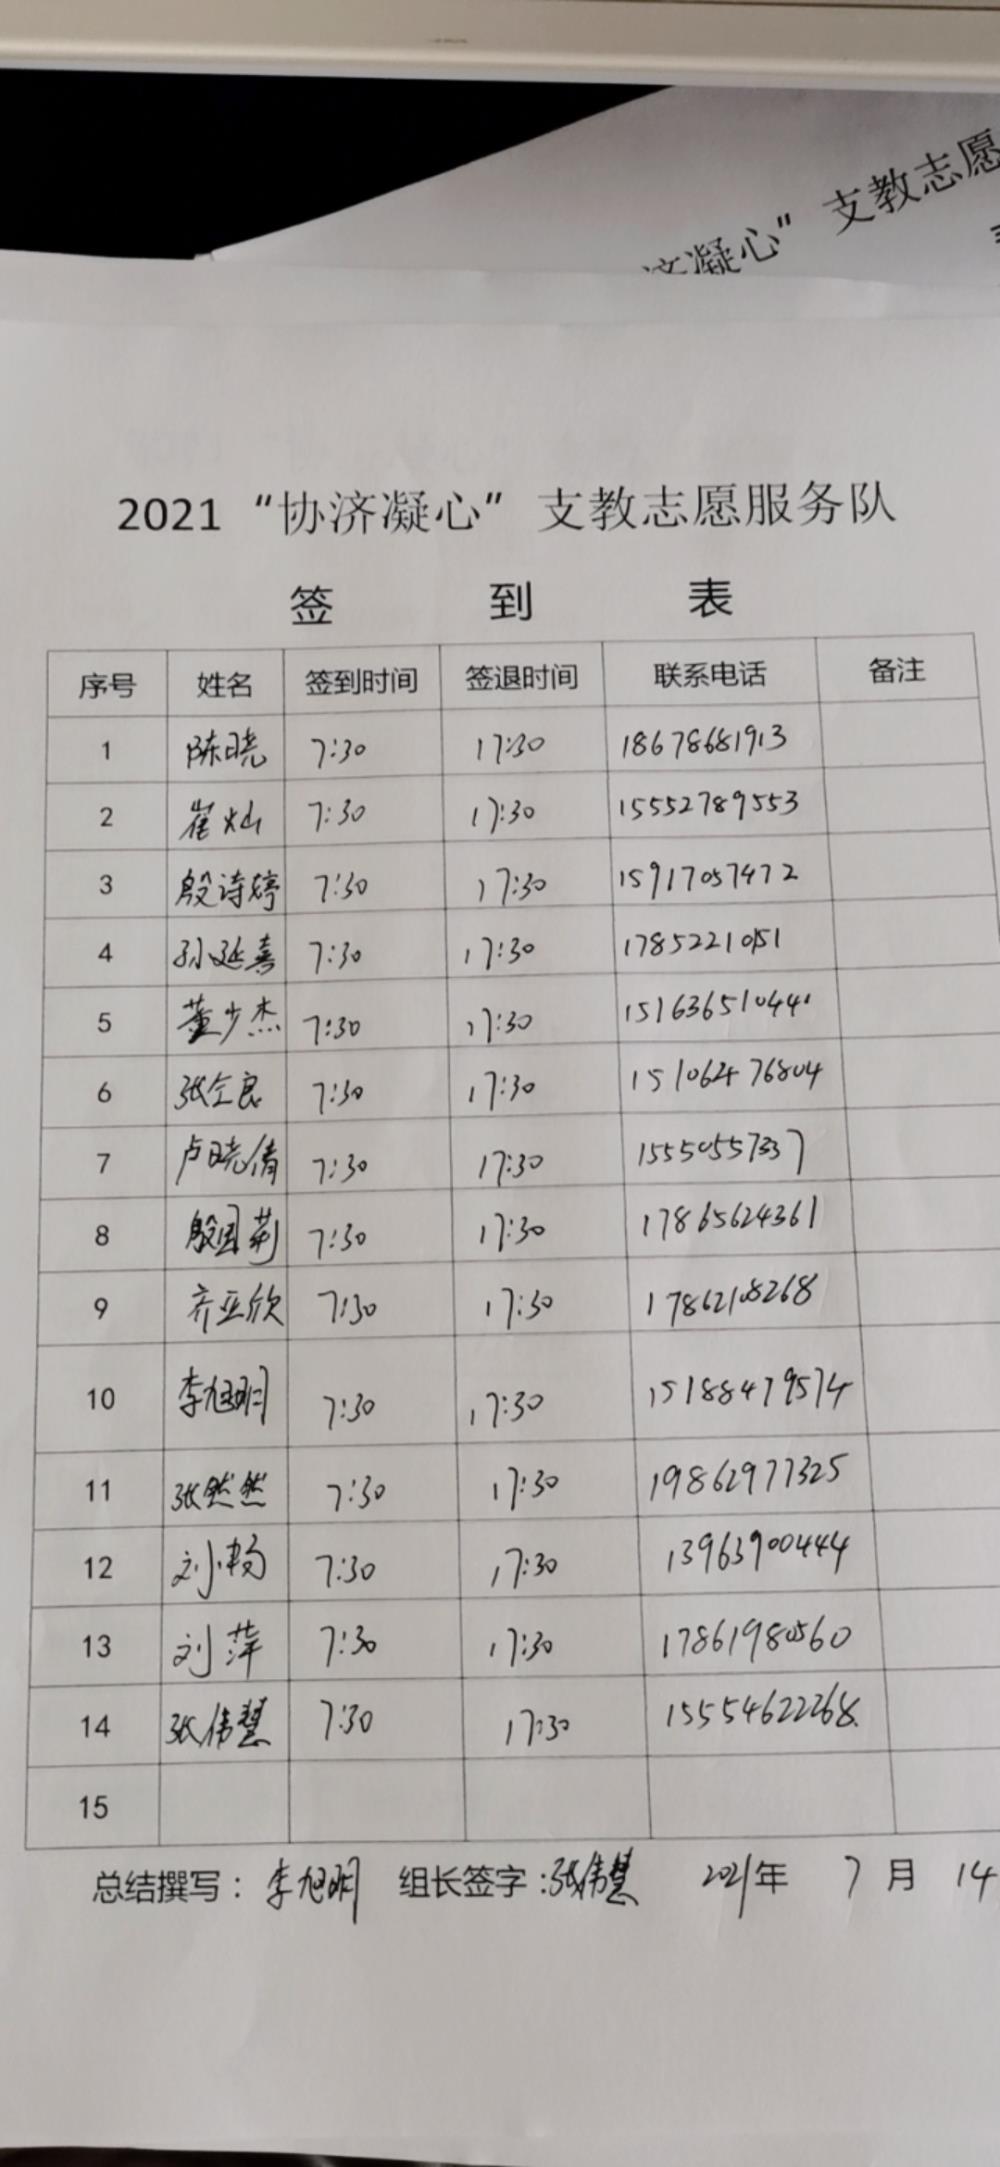 支教志愿
济凝心”
2021 “协济凝心” 支教志愿服务队
签 到 表
序号 姓名 签到时间 签退时间 联系电话 备注
1 陈晓 7:30 17:30 18678681913
2 崔灿 7:30 17:30 15552789553
3 殷诗婷 7:30 17:30 15917057472
4 孙延熹 7:30 17:30 17852210151
5 董少杰 7:30 17:30 15163651044
6 张全良 7:30 17:30 15106476804
7 卢晓倩 7:30 17:30 15550557337
8 殷国莉 7:30 17:30 17865624361
9 齐亚欣 7:30 17:30 17862108268
10 李旭明 7:30 17:30 15188479574
11 张然然 7:30 17:30 19862977325
12 刘畅 7:30 17:30 13963900444
13 刘萍 7:30 17:30 17861980560
14 张伟慧 7:30 17:30 15554622268
15
总结撰写：李旭明 组长签字：张伟慧 2021年 7 月 14